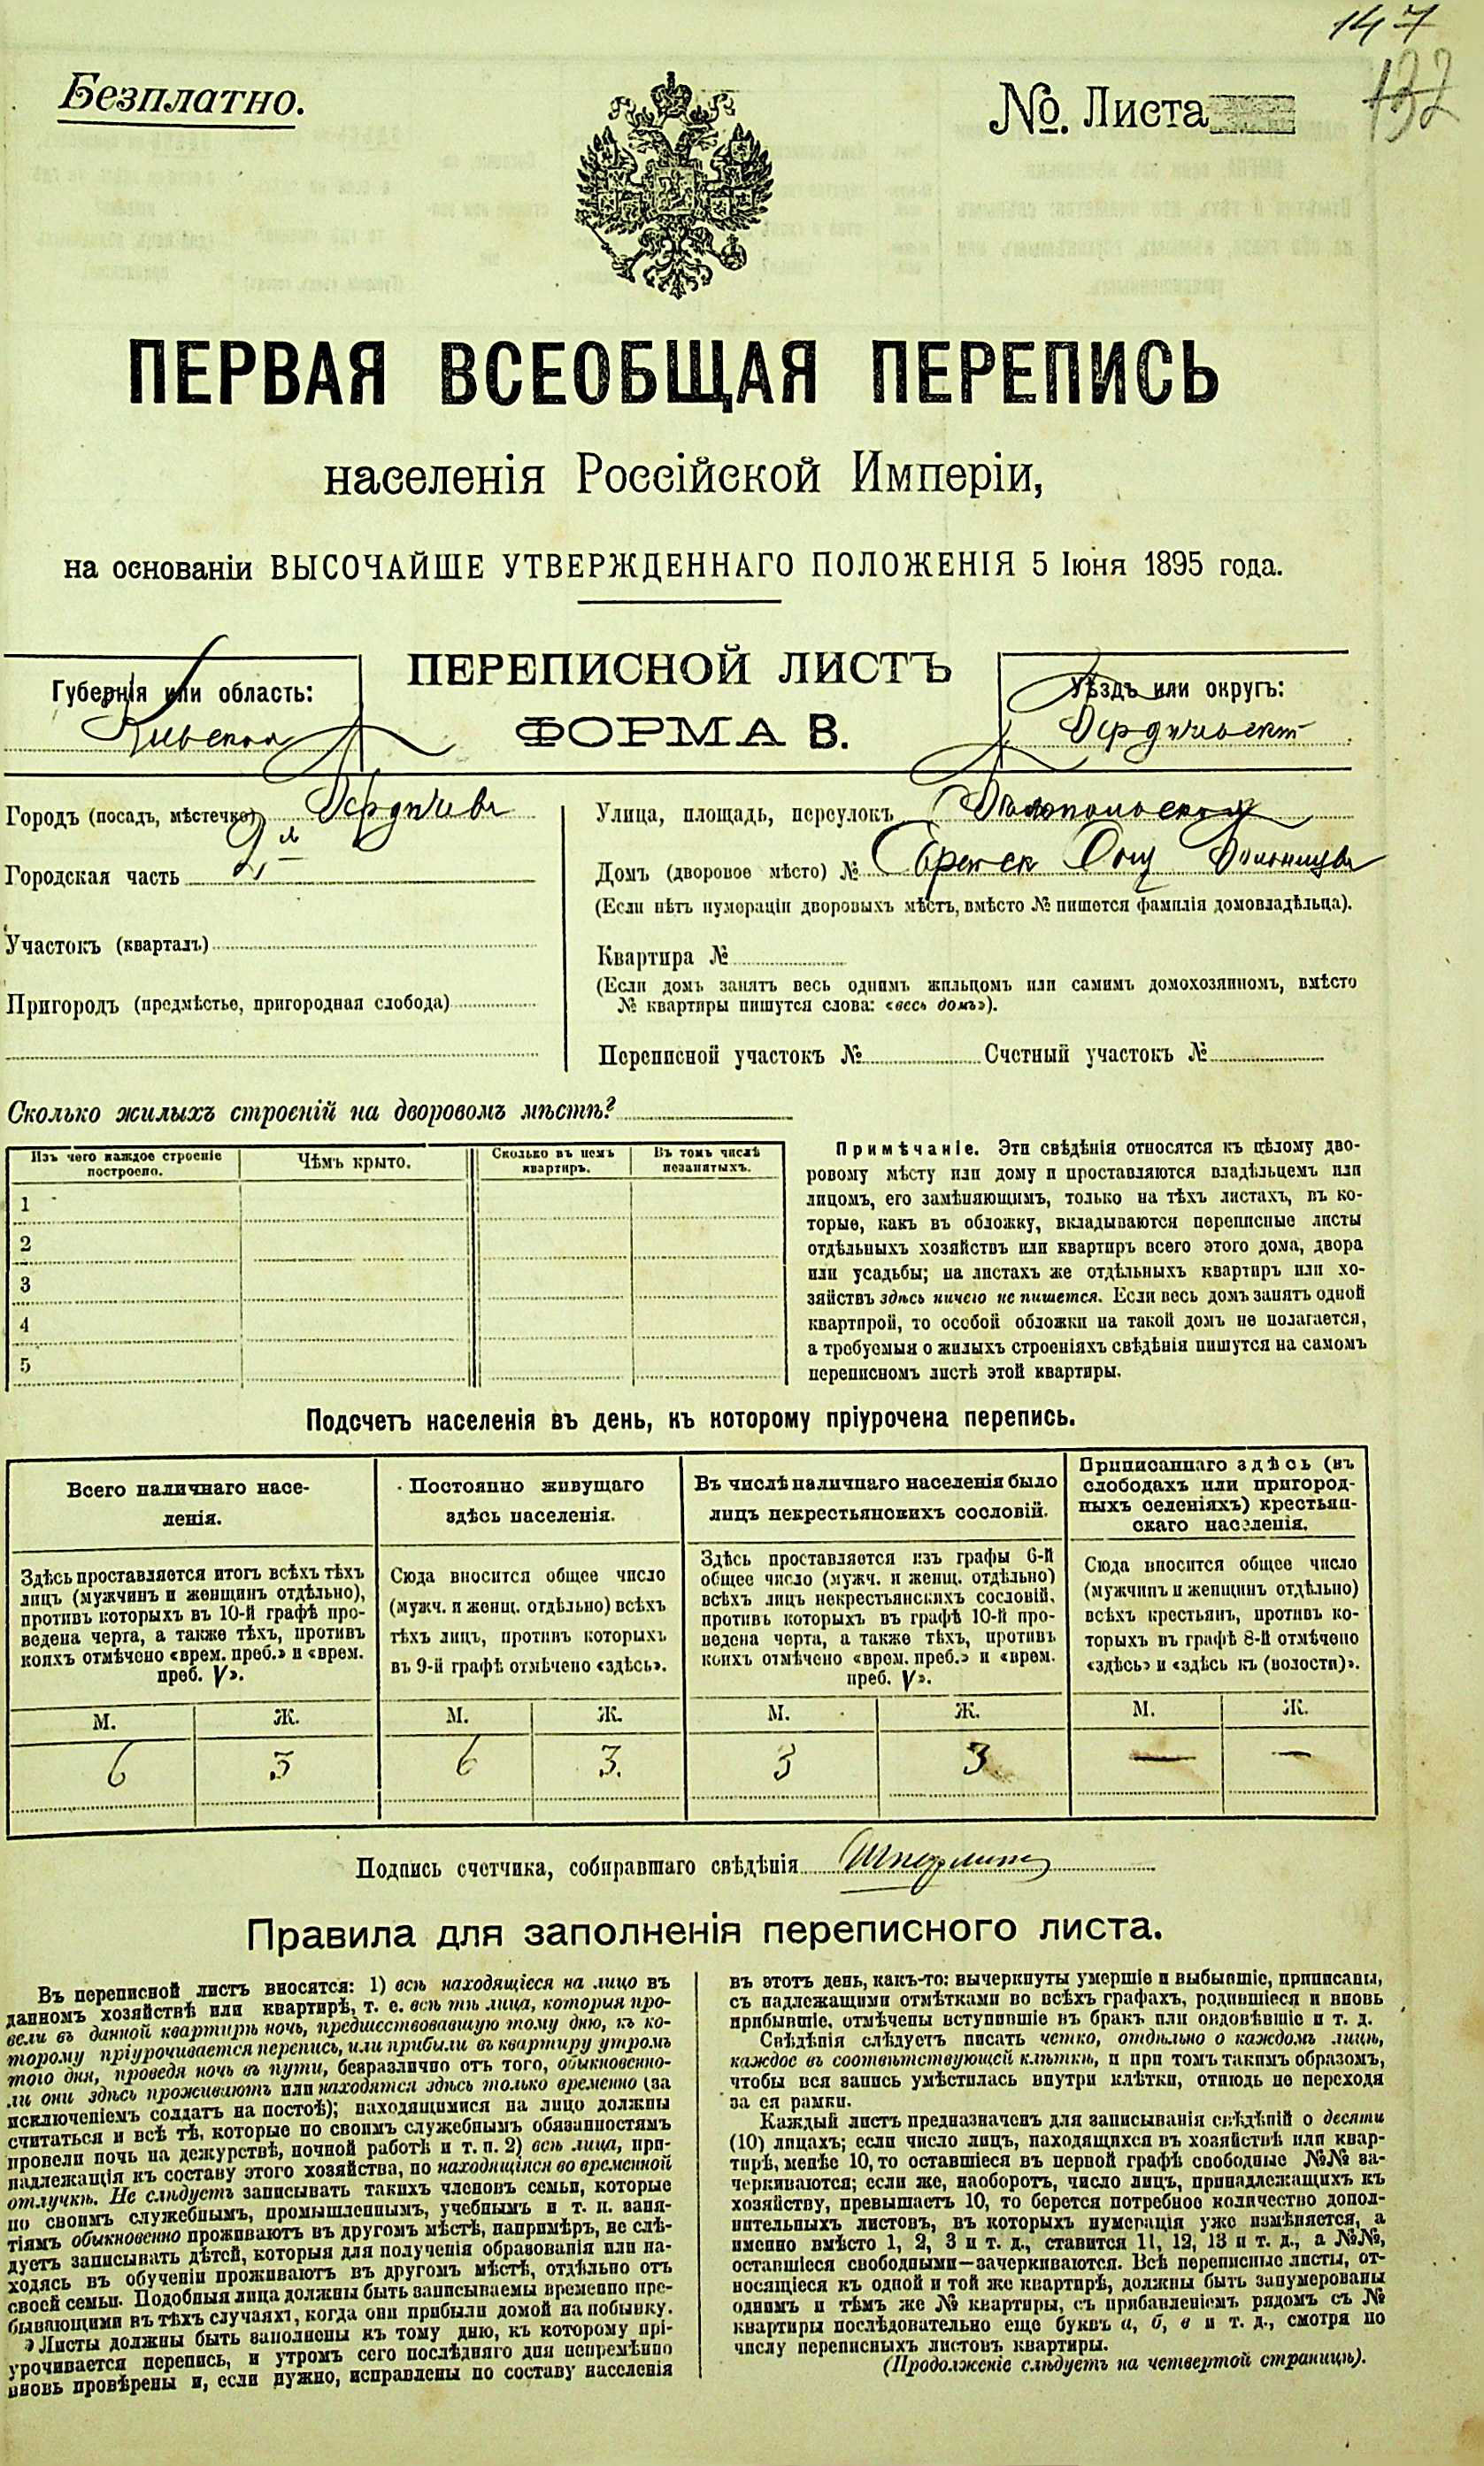 147
132
Безплатно.
№. Листа
ПЕРВАЯ ВСЕОБЩАЯ ПЕРЕПИСЬ
населенія Россійской Имперіи,
на основаніи ВЫСОЧАЙШЕ УТВЕРЖДЕННАГО ПОЛОЖЕНІЯ 5 Іюня 1895 года.
Губернія или область:
Кіевская
ПЕРЕПИСНОЙ ЛИСТЪ
ФОРМА В.
Уѣздъ или округъ:
Бердичевскій
Городъ (посадъ, мѣстечко) Бердичевъ
Городская часть 2я
Участокъ (кварталъ)
Пригородъ (предмѣстье, пригородная слобода)
Улица, площадь, переулокъ Бѣлопольская
Домъ (дворовое мѣсто) №
(Если нѣтъ нумераціи дворовыхъ мѣстъ, вмѣсто № пишется фамилія домовладѣльца).
Квартира №
(Если домъ занятъ весь однимъ жильцомъ или самимъ домохозяиномъ, вмѣсто
№ квартиры пишутся слова: «весь домъ»).
Переписной участокъ № Счетный участокъ №
Сколько жилыхъ строеній на дворовомъ мѣстѣ?
Изъ чего каждое строеніе построено.
Чѣмъ крыто.
Сколько въ немъ квартиръ.
Въ томъ числѣ незанятыхъ.
1
2
3
4
5
Примѣчаніе. Эти свѣдѣнія относятся къ цѣлому дво-
ровому мѣсту или дому и проставляются владѣльцемъ или
лицомъ, его замѣняющимъ, только на тѣхъ листахъ, въ ко-
торые, какъ въ обложку, вкладываются переписные листы
отдѣльныхъ хозяйствъ или квартиръ всего этого дома, двора
или усадьбы; на листахъ же отдѣльныхъ квартиръ или хо-
зяйствъ здѣсь ничего не пишется. Если весь домъ занятъ одной
квартирой, то особой обложки на такой домъ не полагается,
а требуемыя о жилыхъ строеніяхъ свѣдѣнія пишутся на самомъ
переписномъ листѣ этой квартиры.
Подсчетъ населенія въ день, къ которому пріурочена перепись.
Всего наличнаго насе-
ленія.
Здѣсь проставляется итогъ всѣхъ тѣхъ
лицъ (мужчинъ и женщинъ отдѣльно),
противъ которыхъ въ 10-й графѣ про-
ведена черта, а также тѣхъ, противъ
коихъ отмѣчено «врем. преб.» и «врем.
преб. V».
Постоянно живущаго
здѣсь населенія.
Сюда вносится общее число
(мужч. и женщ. отдѣльно) всѣхъ
тѣхъ лицъ, противъ которыхъ
въ 9-й графѣ отмѣчено «здѣсь».
Въ числѣ наличнаго населенія было
лицъ некрестьянскихъ сословій.
Здѣсь проставляется изъ графы 6-й
общее число (мужч. и женщ. отдѣльно)
всѣхъ лицъ некрестьянскихъ сословій,
противъ которыхъ въ графѣ 10-й про-
ведена черта, а также тѣхъ, противъ
коихъ отмѣчено «врем. преб.» и «врем.
преб. V».
Приписаннаго здѣсь (въ
слободахъ или пригород-
ныхъ селеніяхъ) крестьян-
скаго населенія.
Сюда вносится общее число
(мужчинъ и женщинъ отдѣльно)
всѣхъ крестьянъ, противъ ко-
торыхъ въ графѣ 8-й отмѣчено
«здѣсь» и «здѣсь къ (волости)».
М. Ж. М. Ж. М. Ж. М. Ж.
6 3 6 3. 3 3 — —
Подпись счетчика, собиравшаго свѣдѣнія
Правила для заполненія переписного листа.
Въ переписной листъ вносятся: 1) всѣ находящіеся на лицо въ
данномъ хозяйствѣ или квартирѣ, т. е. всѣ тѣ лица, которыя про-
вели въ данной квартирѣ ночь, предшествовавшую тому дню, къ ко-
торому пріурочивается перепись, или прибыли въ квартиру утромъ
того дня, проведя ночь въ пути, безразлично отъ того, обыкновенно-
ли они здѣсь проживаютъ или находятся здѣсь только временно (за
исключеніемъ солдатъ на постоѣ); находящимися на лицо должны
считаться и всѣ тѣ, которые по своимъ служебнымъ обязанностямъ
провели ночь на дежурствѣ, ночной работѣ и т. п. 2) всѣ лица, при-
надлежащія къ составу этого хозяйства, но находящіяся во временной
отлучкѣ. Не слѣдуетъ записывать такихъ членовъ семьи, которые
по своимъ служебнымъ, промышленнымъ, учебнымъ и т. п. заня-
тіямъ обыкновенно проживаютъ въ другомъ мѣстѣ, напримѣръ, не слѣ-
дуетъ записывать дѣтей, которыя для полученія образованія или на-
ходясь въ обученіи проживаютъ въ другомъ мѣстѣ, отдѣльно отъ
своей семьи. Подобныя лица должны быть записываемы временно пре-
бывающими въ тѣхъ случаяхъ, когда они прибыли домой на побывку.
Листы должны быть заполнены къ тому дню, къ которому прі-
урочивается перепись, и утромъ сего послѣдняго дня непремѣнно
вновь провѣрены и, если нужно, исправлены по составу населенія
въ этотъ день, какъ-то: вычеркнуты умершіе и выбывшіе, приписаны,
съ надлежащими отмѣтками во всѣхъ графахъ, родившіеся и вновь
прибывшіе, отмѣчены вступившіе въ бракъ или овдовѣвшіе и т. д.
Свѣдѣнія слѣдуетъ писать четко, отдѣльно о каждомъ лицѣ,
каждое въ соотвѣтствующей клѣткѣ, и при томъ такимъ образомъ,
чтобы вся запись умѣстилась внутри клѣтки, отнюдь не переходя
за ея рамки.
Каждый листъ предназначенъ для записыванія свѣдѣній о десяти
(10) лицахъ; если число лицъ, находящихся въ хозяйствѣ или квар-
тирѣ, менѣе 10, то оставшіеся въ первой графѣ свободные №№ за-
черкиваются; если же, наоборотъ, число лицъ, принадлежащихъ къ
хозяйству, превышаетъ 10, то берется потребное количество допол-
нительныхъ листовъ, въ которыхъ нумерація уже измѣняется, а
именно вмѣсто 1, 2, 3 и т. д., ставится 11, 12, 13 и т. д., а №№,
оставшіеся свободными—зачеркиваются. Всѣ переписные листы, от-
носящіеся къ одной и той же квартирѣ, должны быть занумерованы
однимъ и тѣмъ же № квартиры, съ прибавленіемъ рядомъ съ №
квартиры послѣдовательно еще буквъ а, б, в и т. д., смотря по
числу переписныхъ листовъ квартиры.
(Продолженіе слѣдуетъ на четвертой страницѣ).